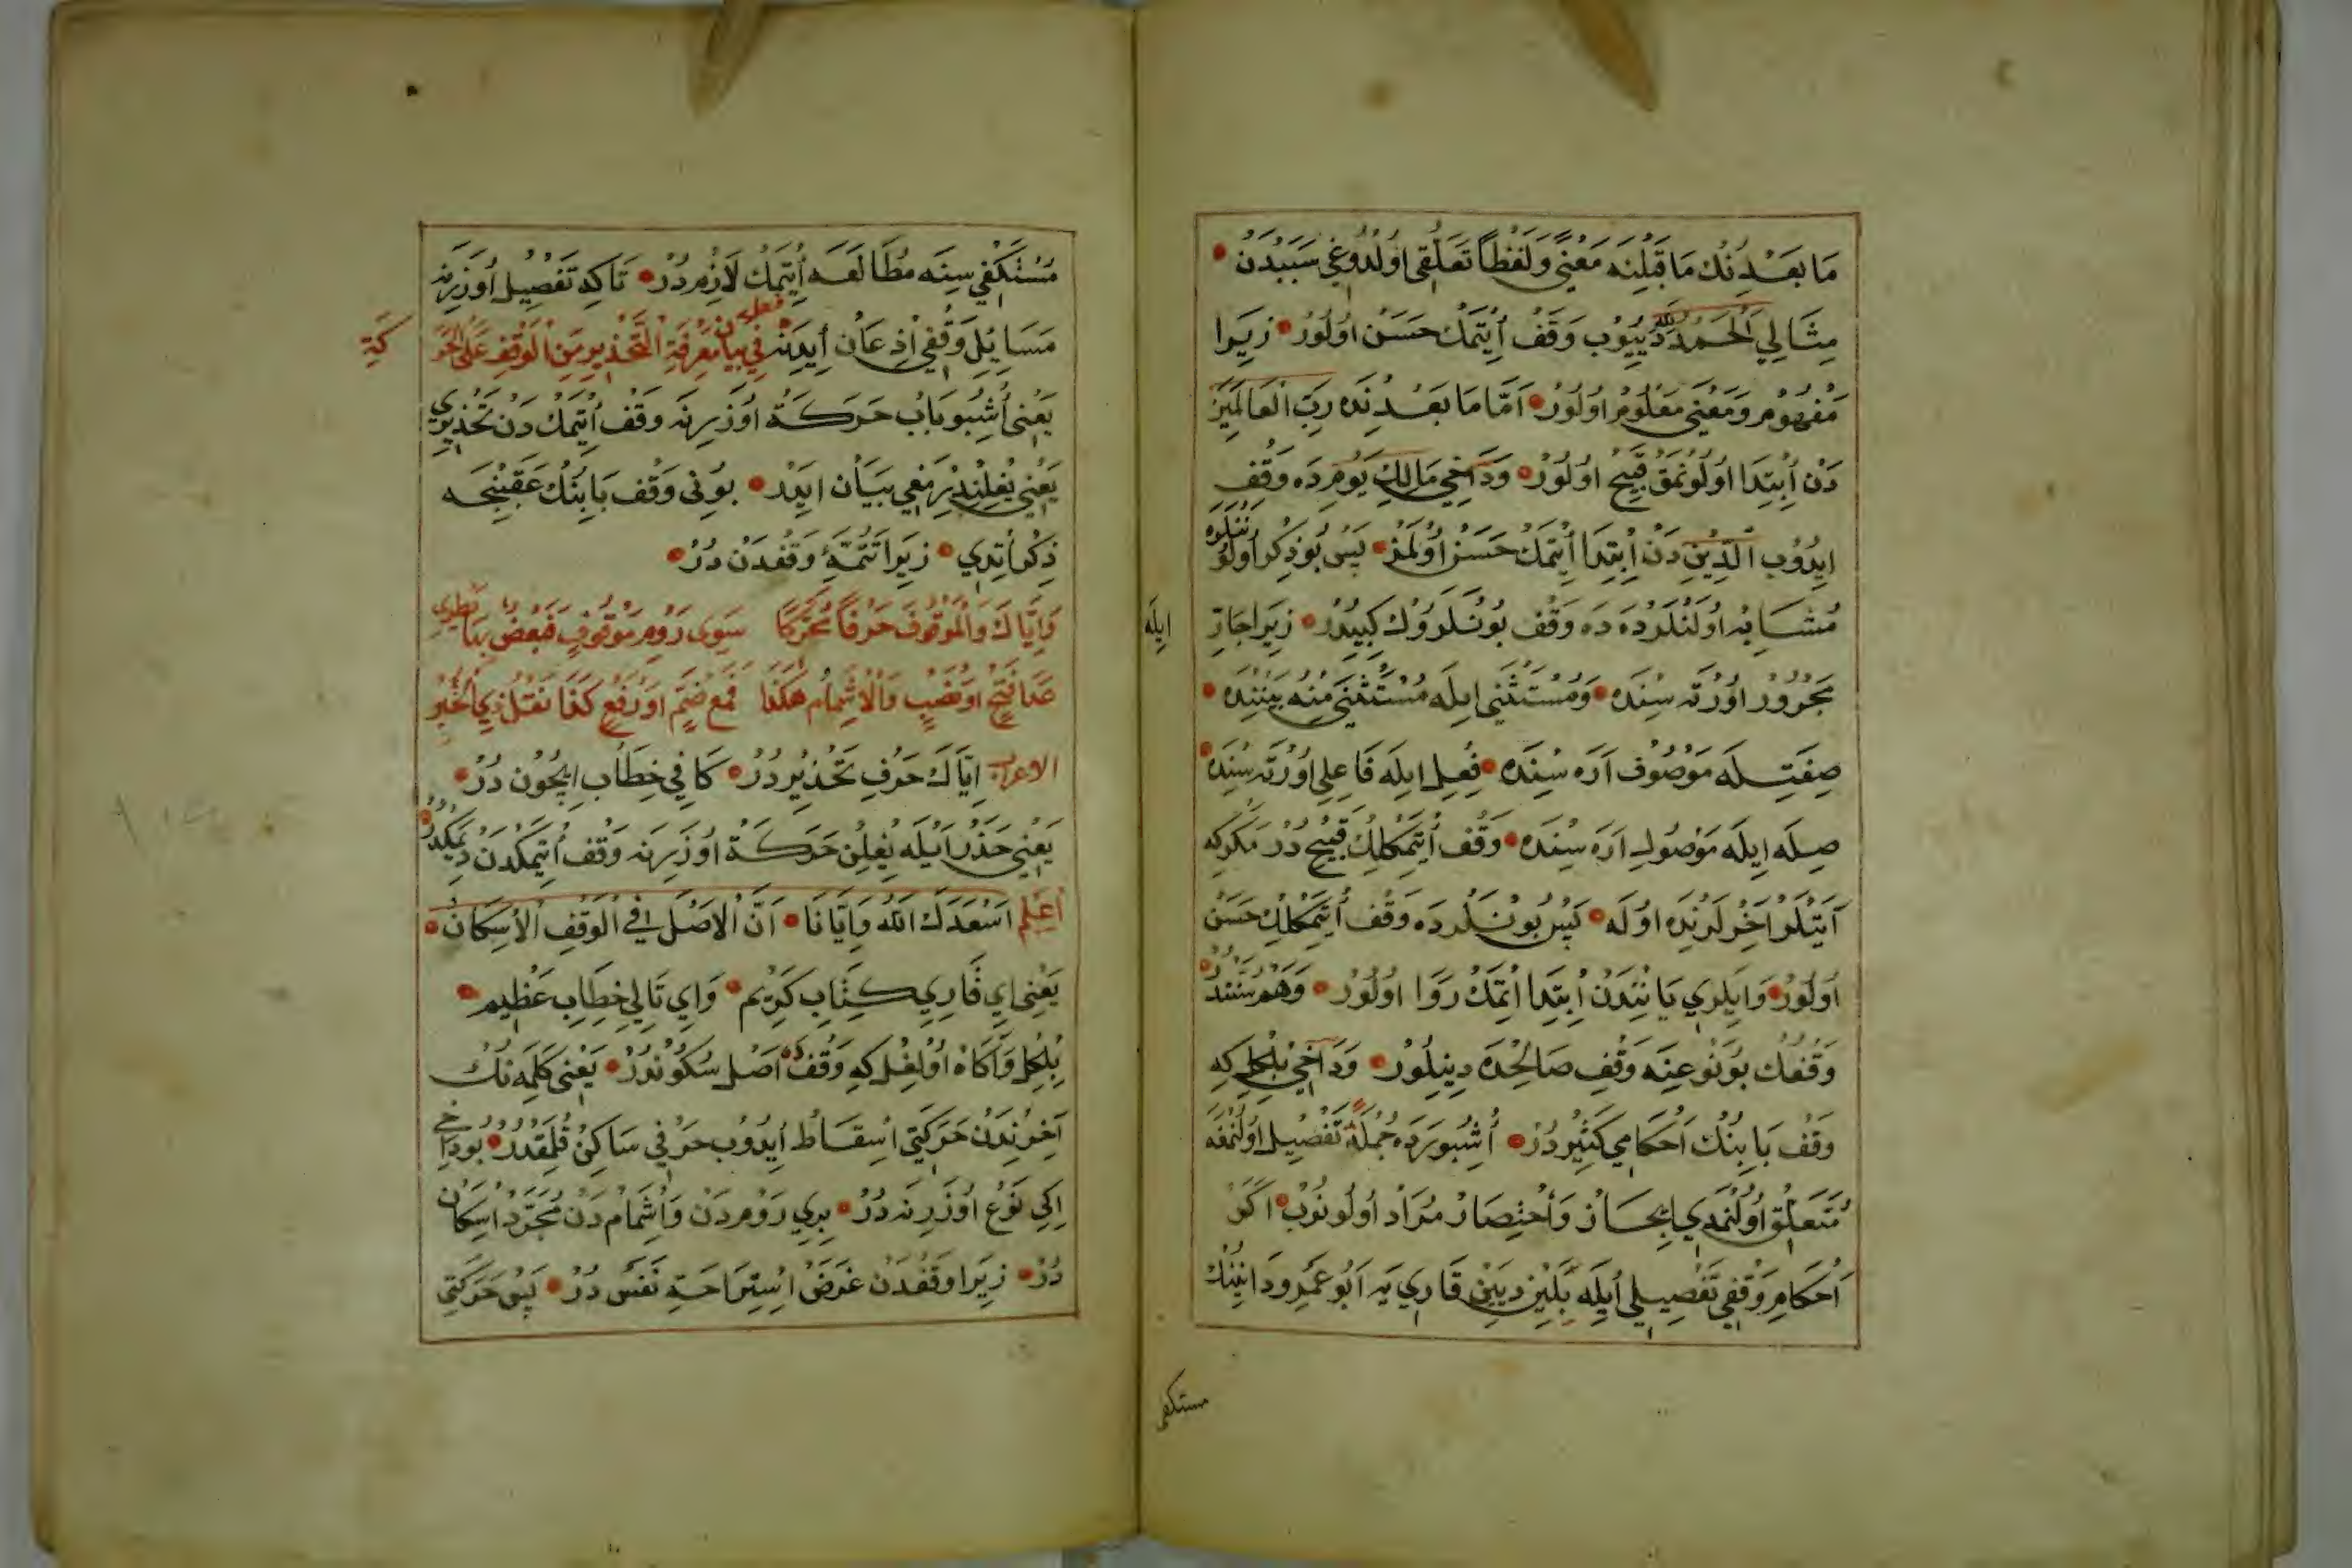 مَا بَعْدِنُكْ مَا قَبْلِنَه مَعْنًى وَلَفْظًا تَعَلُّقِى اوُلْدُوغِي سَبَبْدَنْ
مِثَالِي الْحَمْدُ لِلّٰه دَيِيُوبْ وَقَفْ اُيتْمَكْ حَسَنْ اوُلُورْ زِيَرا
مَفْهُومْ وَمَعْنِي مَعْلُومْ اوُلُورْ اَمَّا مَا بَعْدِنْدَه رَبِّ الْعَالَمِينَ
دَنْ اِبْتِدَا اوُلُونْمَقْ قَبِيحْ اوُلُورْ وَدَاخِي مَالِكِ يَوْمِ دَه وَقْفْ
ايِدُوبْ الدِّينِ دَنْ اِبْتِدَا اُيتْمَكْ حَسَنْ اوُلْمَزْ پَسْ بُو ذِكْر اوُلُونَنْلَرَه
مُشَابِه اوُلَنْلَرْدَه دَه وَقْف بُونْلَرُوكْ كِبِيدُرْ زِيَرا جَارّ ايِلَه
مَجْرُورْ اوُرْتَه سِنْدَه وَمُسْتَثْنَى ايِلَه مُسْتَثْنَى مِنْه بَيْنِنْدَه
صِفَتِلَه مَوْصُوفْ اَرَه سِنْدَه فِعِل ايِلَه فَاعِلِ اوُرْتَه سِنْدَه
صِلَه ايِلَه مَوْصُولِ اَرَه سِنْدَه وَقْف اُيتْمَكْلِكْ قَبِيحْ دُرْ مَكَرْكِه
آيَتْلَرْ آخِرْلَرِنْدَه اوُلَه پَسْ بُونْلَرْدَه وَقْف اُيتْمَكْلِكْ حَسَنْ
اوُلُورْ وَايِلَرِي يَانِنْدَنْ اِبْتِدَا اُيتْمَكْ رَوَا اوُلُورْ وَهَمْ سُنَّتْدُرْ
وَقْفُكْ بُو نَوْعِنَه وَقْفِ صَالِحْدَه دِينِلُورْ وَدَاخِي بِلْكِلْ كِه
وَقْف بَابِنُكْ اَحْكَامِي كَثِيرْدُرْ اُشْبُو يَرْدَه جُمْلَةً تَفْصِيلِ اوُلُنْمَغَه
مُتَعَلِّقْ اوُلُنْمَدِي اِيجَازْ وَاخْتِصَارْ مُرَادْ اوُلُونُوبْ اَكَرْ
اَحْكَامِ وَقْفِي تَفْصِيلِي اُيلَه بَلَيِنْ دِيَينْ قَارِي يَه اَبُو عَمْرِو دَانِينُكْ
مستكفى
مُسْتَكْفِي سِنَه مُطَالَعَه اُيتْمَكْ لَازِمْ دُرْ تَا كِه تَفْصِيلِ اوُزَرِنَه
مَسَايِلِ وَقْفِي اِذْعَانْ اَيدِنَه فصل فِي بَيَانِ مَعْرِفَةِ التَّحْذِيرِ مِنَ الْوَقْفِ عَلَى الْحَرَكَةِ
يَعْنِي اُشْبُو بَابْ حَرَكَةْ اوُزَرِنَه وَقْف اُيتْمَكْ دَنْ تَحْذِيرِي
يَعْنِي يِغْلِنْدِرْمَغِي بَيَانْ ايِدَرْ بُونِى وَقْف بَابِنُكْ عَقِبِنْجَه
ذِكْر اُتْدِي زِيَرا تَتِمَّۀِ وَقْفْدَنْ دُرْ
وَاِيَّاكَ وَالْمَوْقُوفَ حَرْفًا مُحَرَّكًا سِوَى رَوْمِ مَوْقُوفٍ فَبَعْضٌ بِمَا طُرِي
عَدَا فَتْحٍ اَوْ نَصْبٍ وَالْاِشْمَامُ هَكَذَا فَمَعْ ضَمٍّ اَوْ رَفْعٍ كَفَا نَقْلُ ذِي الْخُبْرِ
الاعراب اِيَّاكَ حَرْفِ تَحْذِيرْدُرْ كَافِي خِطَابْ ايِچُونْ دُرْ
يَعْنِي حَذَرْ اَيْلَه يِغْلِنْ حَرَكَةْ اوُزَرِنَه وَقْف اُيتْمَكْدَنْ دِيمَكْدُرْ
اِعْلَمْ اَسْعَدَكَ اللّٰهُ وَاِيَّانَا اَنَّ الْاَصْلَ فِي الْوَقْفِ الْاِسْكَانُ
يَعْنِي اَيِ قَارِي كِتَابِ كَرِيمْ وَاَيِ تَالِي خِطَابِ عَظِيمْ
بِلْكِلْ وَآكَاهْ اوُلْغِلْ كِه وَقْفْدَه اَصْل سُكُونْدُرْ يَعْنِي كَلِمَه نُكْ
آخِرِنْدَنْ حَرَكَتِي اِسْقَاطْ اَيدُوبْ حَرْفِي سَاكِنْ قِلْمَقْدُرْ بُو دَاخِي
اِكِي نَوْعِ اوُزَرِنَه دُرْ بِرِي رَوْمْ دَنْ وَاِشْمَامْ دَنْ مُجَرَّدْ اِسْكَانْ
دُرْ زِيَرا وَقْفْدَنْ غَرَضْ اِسْتِرَاحَةِ نَفَسْ دُرْ پَسْ حَرَكَتِي